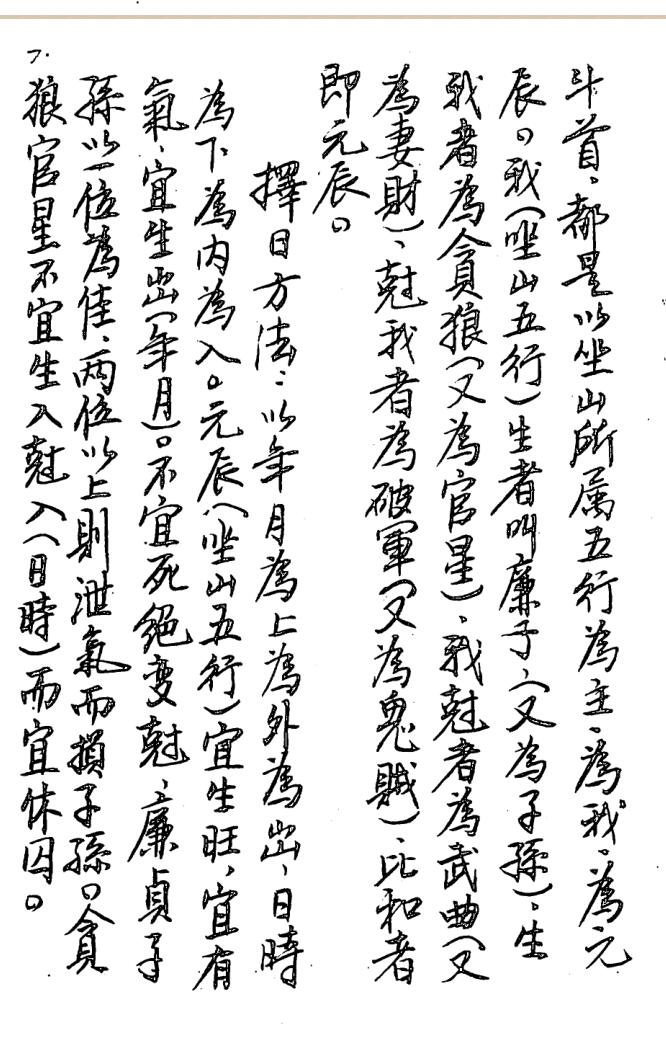 斗首、都是以坐山所属五行為主、為我。為元
辰。我(坐山五行)生者叫廉子、(又為子孫)。生
我者為貪狼(又為官星)、我尅者為武曲(又
為妻財)、尅我者為破軍(又為鬼賊)、比和者
即元辰。
擇日方法:以年月為上為外為出、日時
為下為内為入。元辰(坐山五行)宜生旺、宜有
氣、宜生出(年月)。不宜死絕变尅、廉貞子
孫以一位為佳、両位以上則泄氣而損子孫。貪
狼官星不宜生入尅入(日時)而宜休囚。
7.